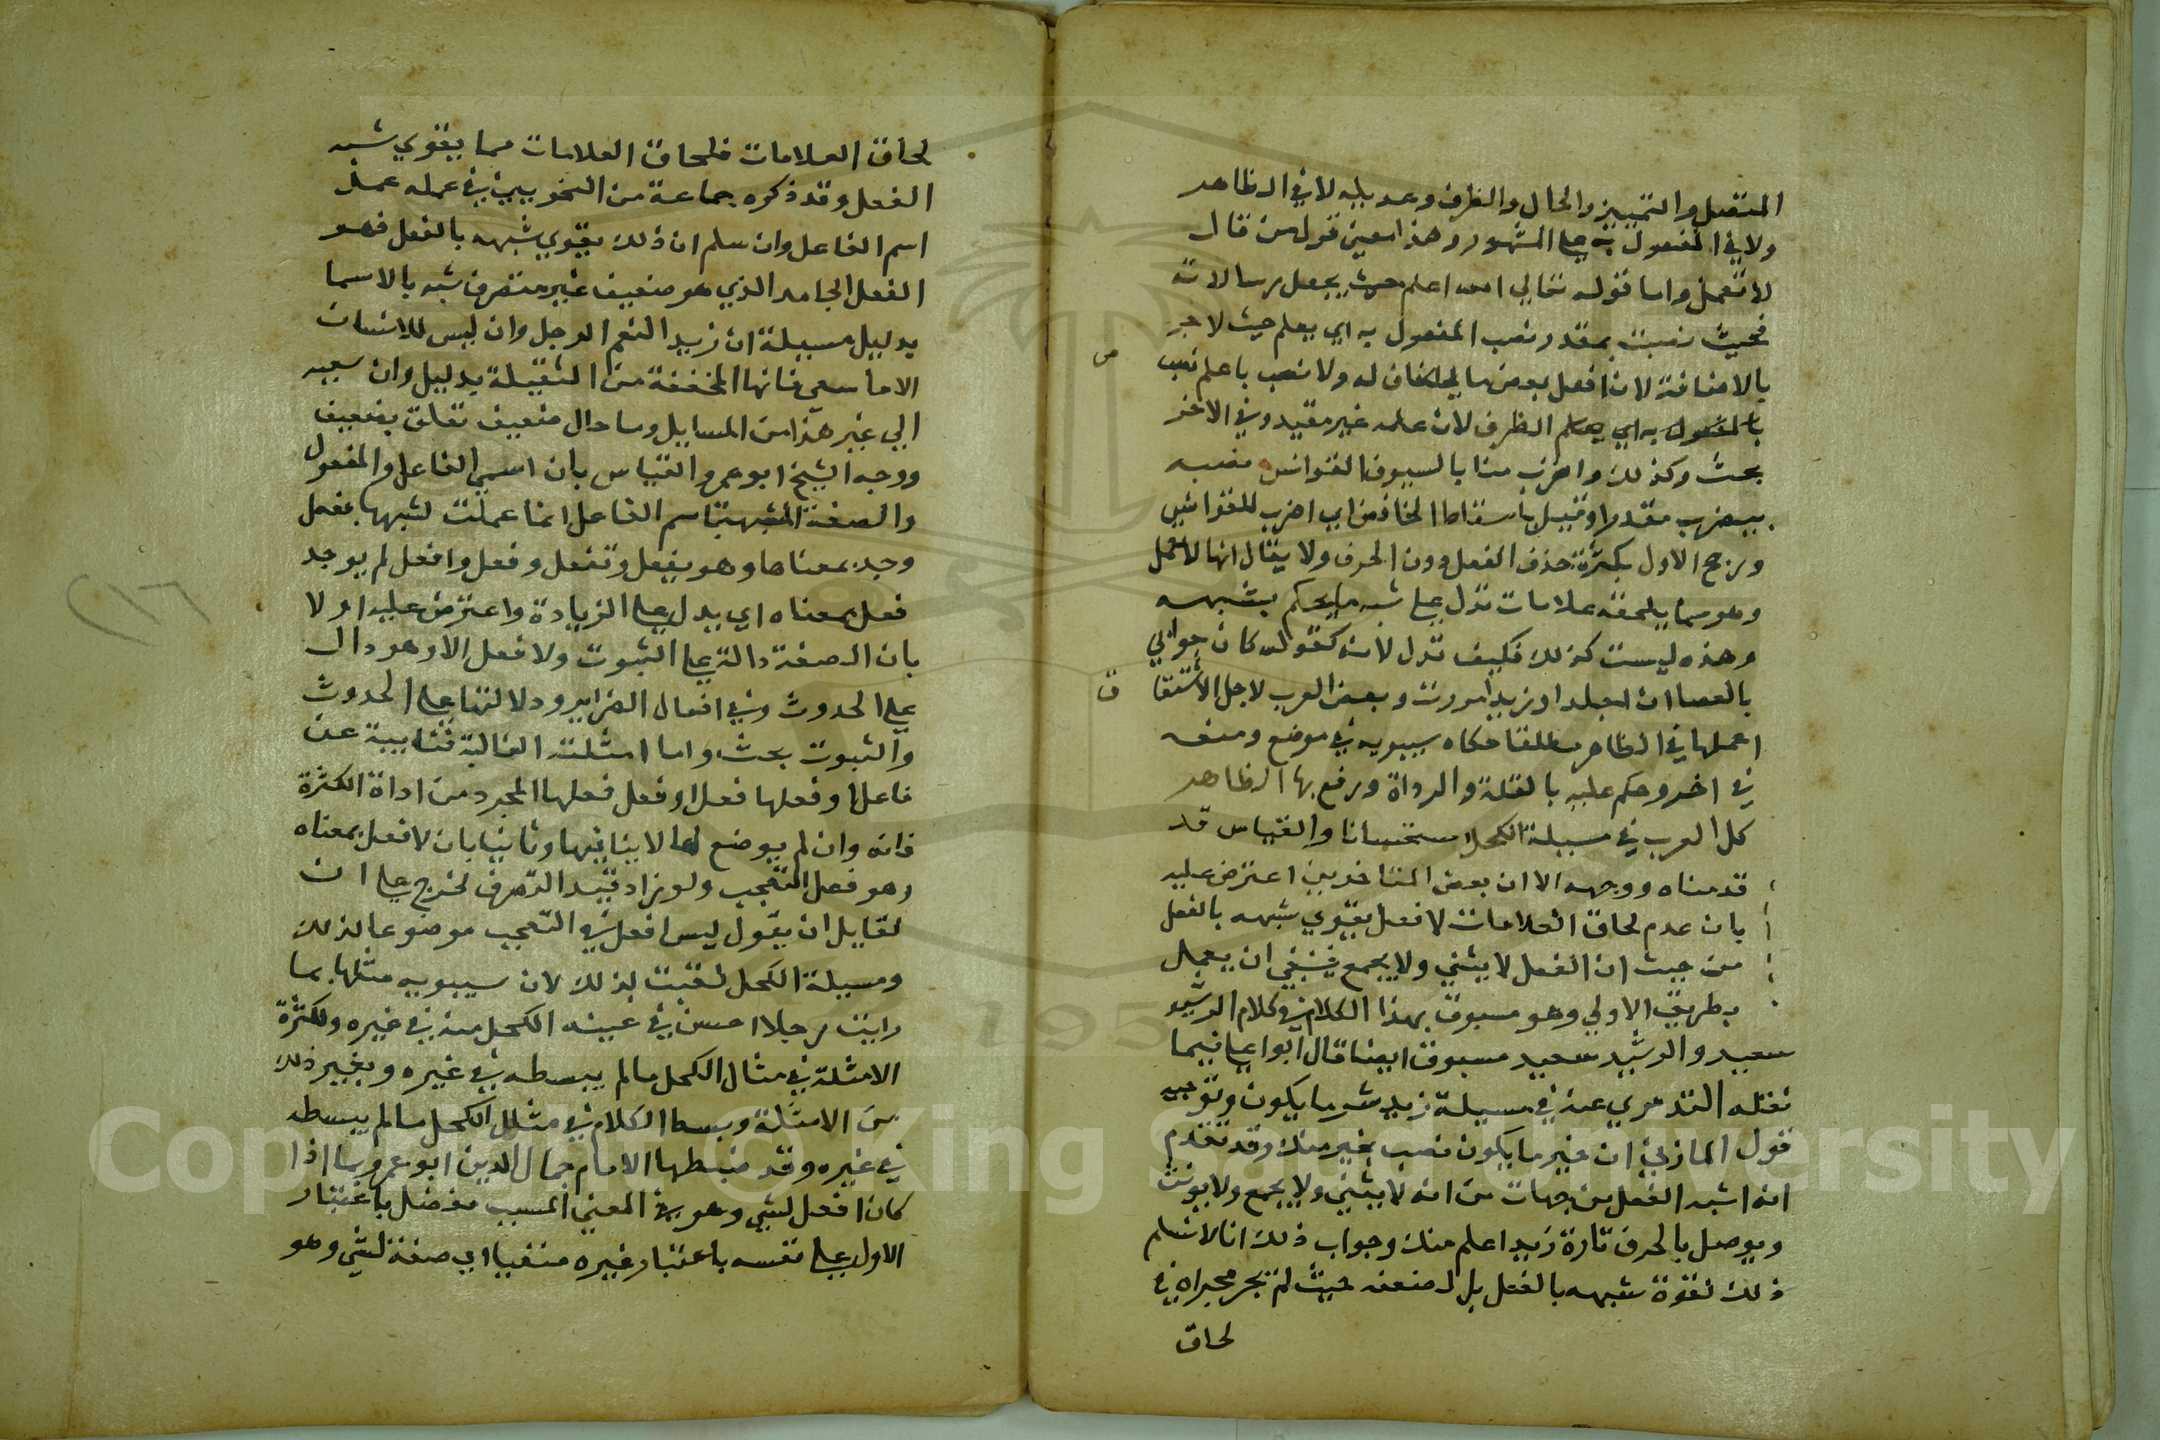 المتصل والتمييز والحال والظرف وعديله لا في الظاهر
ولا في المفعول به على المشهور وهذا معين قول من قال
لا تعمل واما قوله تعالي الله اعلم حيث يجعل رسالاته
فحيث نصبت بمقدر نصب المفعول به اي يعلم حيث لا جر
بالاضافة لان افعل بعض ما يضاف له ولا نصب باعلم نصب
ض
المفعول به اي يعلم الظرف لان علمه غير مقيد وفي الاخر
بحث وكذلك واضرب منا بالسيوف القوانس نصبه
بيضرب مقدرا وقيل باسقاط الخافض اي اضرب للقوانس
ورجح الاول بكثرة حذف الفعل دون الحرف ولا يقال انها لا تعمل
وهو مما يلحقه علامات تدل على شبه ما يحكم بشبهه
وهذه ليست كذلك فكيف تدل لانه كقوله كان جوابي
بالعصا ان اجلدا وزيد امررت وبعض العرب لاجل الاشتقا
ق
اعملها في الظاهر مطلقا حكاه سيبويه في موضع ومنعه
في اخر وحكم عليه بالقلة والرداة ورفع بها الظاهر
كل العرب في مسيلة الكحل استحسانا والقياس قد
قدمناه ووجهه الا ان بعض المتاخرين اعترض عليه
بان عدم لحاق العلامات لافعل يقوي شبهه بالفعل
من حيث ان الفعل لا يثني ولا يجمع فينبغي ان يعمل
بطريق الاولي وهو مسبوق بهذا الكلام في كلام الرشيد
سعيد والرشيد سعيد مسبوق ايضا قال ابو علي فيما
نقله التدمري عنه في مسيلة زيد شر ما يكون وتوجيه
قول المازني ان خير ما يكون نصب بخير منك وقد تقدم
انه اشبه الفعل من جهات من انه لا يثني ولا يجمع ولا يونث
ويوصل بالحرف تارة زيد اعلم منك وجواب ذلك انا لا نسلم
ذلك لقوة شبهه بالفعل بل لضعفه حيث لم يجر مجراه في
لحاق
لحاق العلامات فلحاق العلامات مما يقوي شبه
الفعل وقد ذكره جماعة من النحويين في عمله عمل
اسم الفاعل وان سلم ان ذلك يقوي شبهه بالفعل فهو
الفعل الجامد الذي هو ضعيف غير متصرف شبه بالاسما
بدليل مسيلة ان زيد النعم الرجل وان ليس للانسان
الا ما سعي فانها المخففة من الثقيلة بدليل وان سعيه
الي غير هذا من المسايل وما حال ضعيف تعلق بضعيف
ووجه الشيخ ابو عمرو القياس بان اسمي الفاعل والمفعول
والصفة المشبهة باسم الفاعل انما عملت لشبهها بفعل
وجد بمعناها وهو يفعل وتفعل وفعل وافعل لم يوجد
فعل بمعناه اي يدل على الزيادة واعترض عليه اولا
بان الصفة دالة على الثبوت ولا فعل الا وهو دال
على الحدوث وفي افعال الغرايز ودلالتها على الحدوث
والثبوت بحث واما امثلته الغالبة فنايبة عن
فاعل او فعلها فعل او فعل فعلها المجرد من اداة الكثرة
فانه وان لم يوضع لها لا ينافيها وثانيا بان لافعل بمعناه
وهو فعل التعجب ولو زاد قيد التصرف لخرج على ان
لقايل ان يقول ليس افعل في التعجب موضوعا لذلك
ومسيلة الكحل لقبت بذلك لان سيبويه مثلها بما
رايت رجلا احسن في عينه الكحل منه في غيره ولكثرة
الامثلة في مثال الكحل مالم يبسطه في غيره وبغير ذلك
من الامثلة وبسط الكلام في مثال الكحل مالم يبسطه
في غيره وقد ضبطها الامام جمال الدين ابو عمرو بما اذا
كان افعل لشي وهو في المعني المسبب مفضل باعتبار
الاول على نفسه باعتبار غيره منفيا اي صفة لشي وهو
Copyright © King Saud University
1957